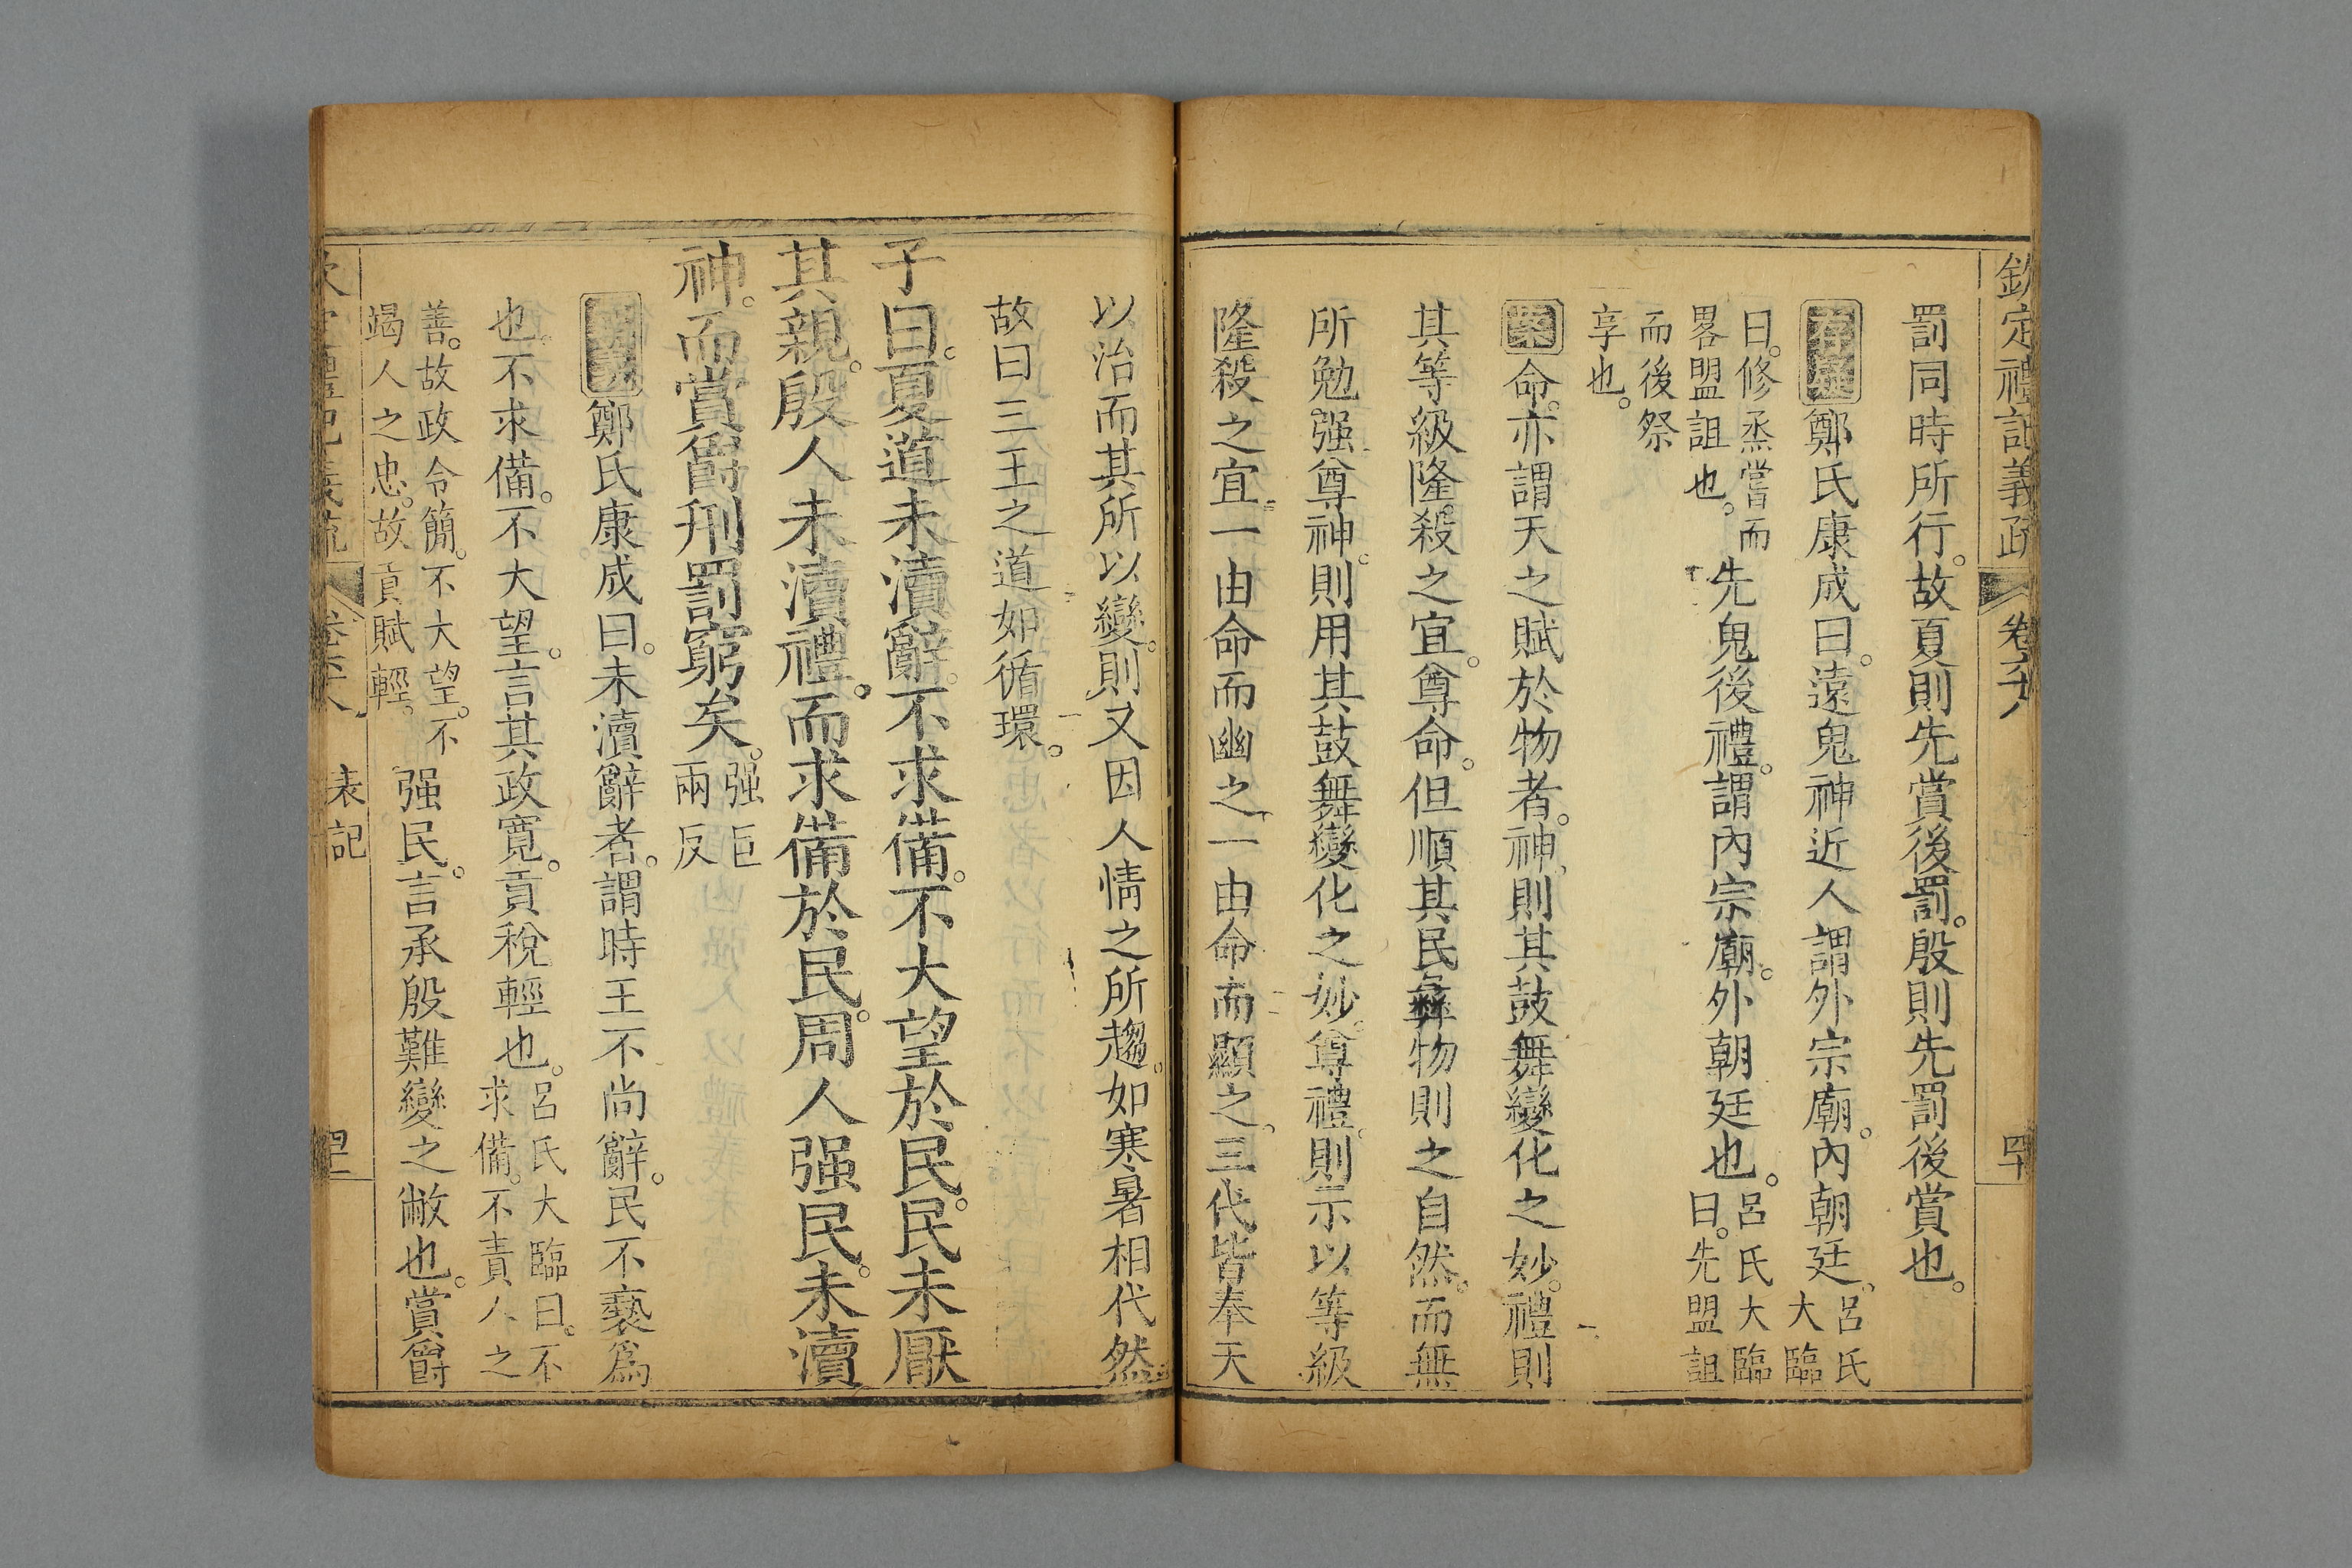 欽定禮記義疏 卷六十八 四十
罰同時所行。故夏則先賞後罰。殷則先罰後賞也。
存疑 鄭氏康成曰。遠鬼神近人謂外宗廟。內朝廷。呂氏大臨
曰。修烝嘗而畧盟詛也。先鬼後禮。謂內宗廟。外朝廷也。呂氏大臨曰。先盟詛
而後祭享也。
案 命。亦謂天之賦於物者。神則其鼓舞變化之妙。禮則
其等級隆殺之宜。尊命。但順其民彝物則之自然。而無
所勉强。尊神。則用其鼓舞變化之妙。尊禮。則示以等級
隆殺之宜。一由命而幽之。一由命而顯之。三代皆奉天
以治而其所以變。則又因人情之所趨。如寒暑相代然
故曰三王之道如循環。
子曰。夏道未瀆辭。不求備。不大望於民。民未厭
其親。殷人未瀆禮。而求備於民。周人强民。未瀆
神。而賞爵刑罰窮矣。强巨兩反
鄭氏康成曰。未瀆辭者。謂時王不尚辭。民不褻爲
也。不求備。不大望。言其政寬。貢稅輕也。呂氏大臨曰。不求備。不責人之
善。故政令簡。不大望。不竭人之忠。故貢賦輕。强民。言承殷難變之敝也。賞爵
表記